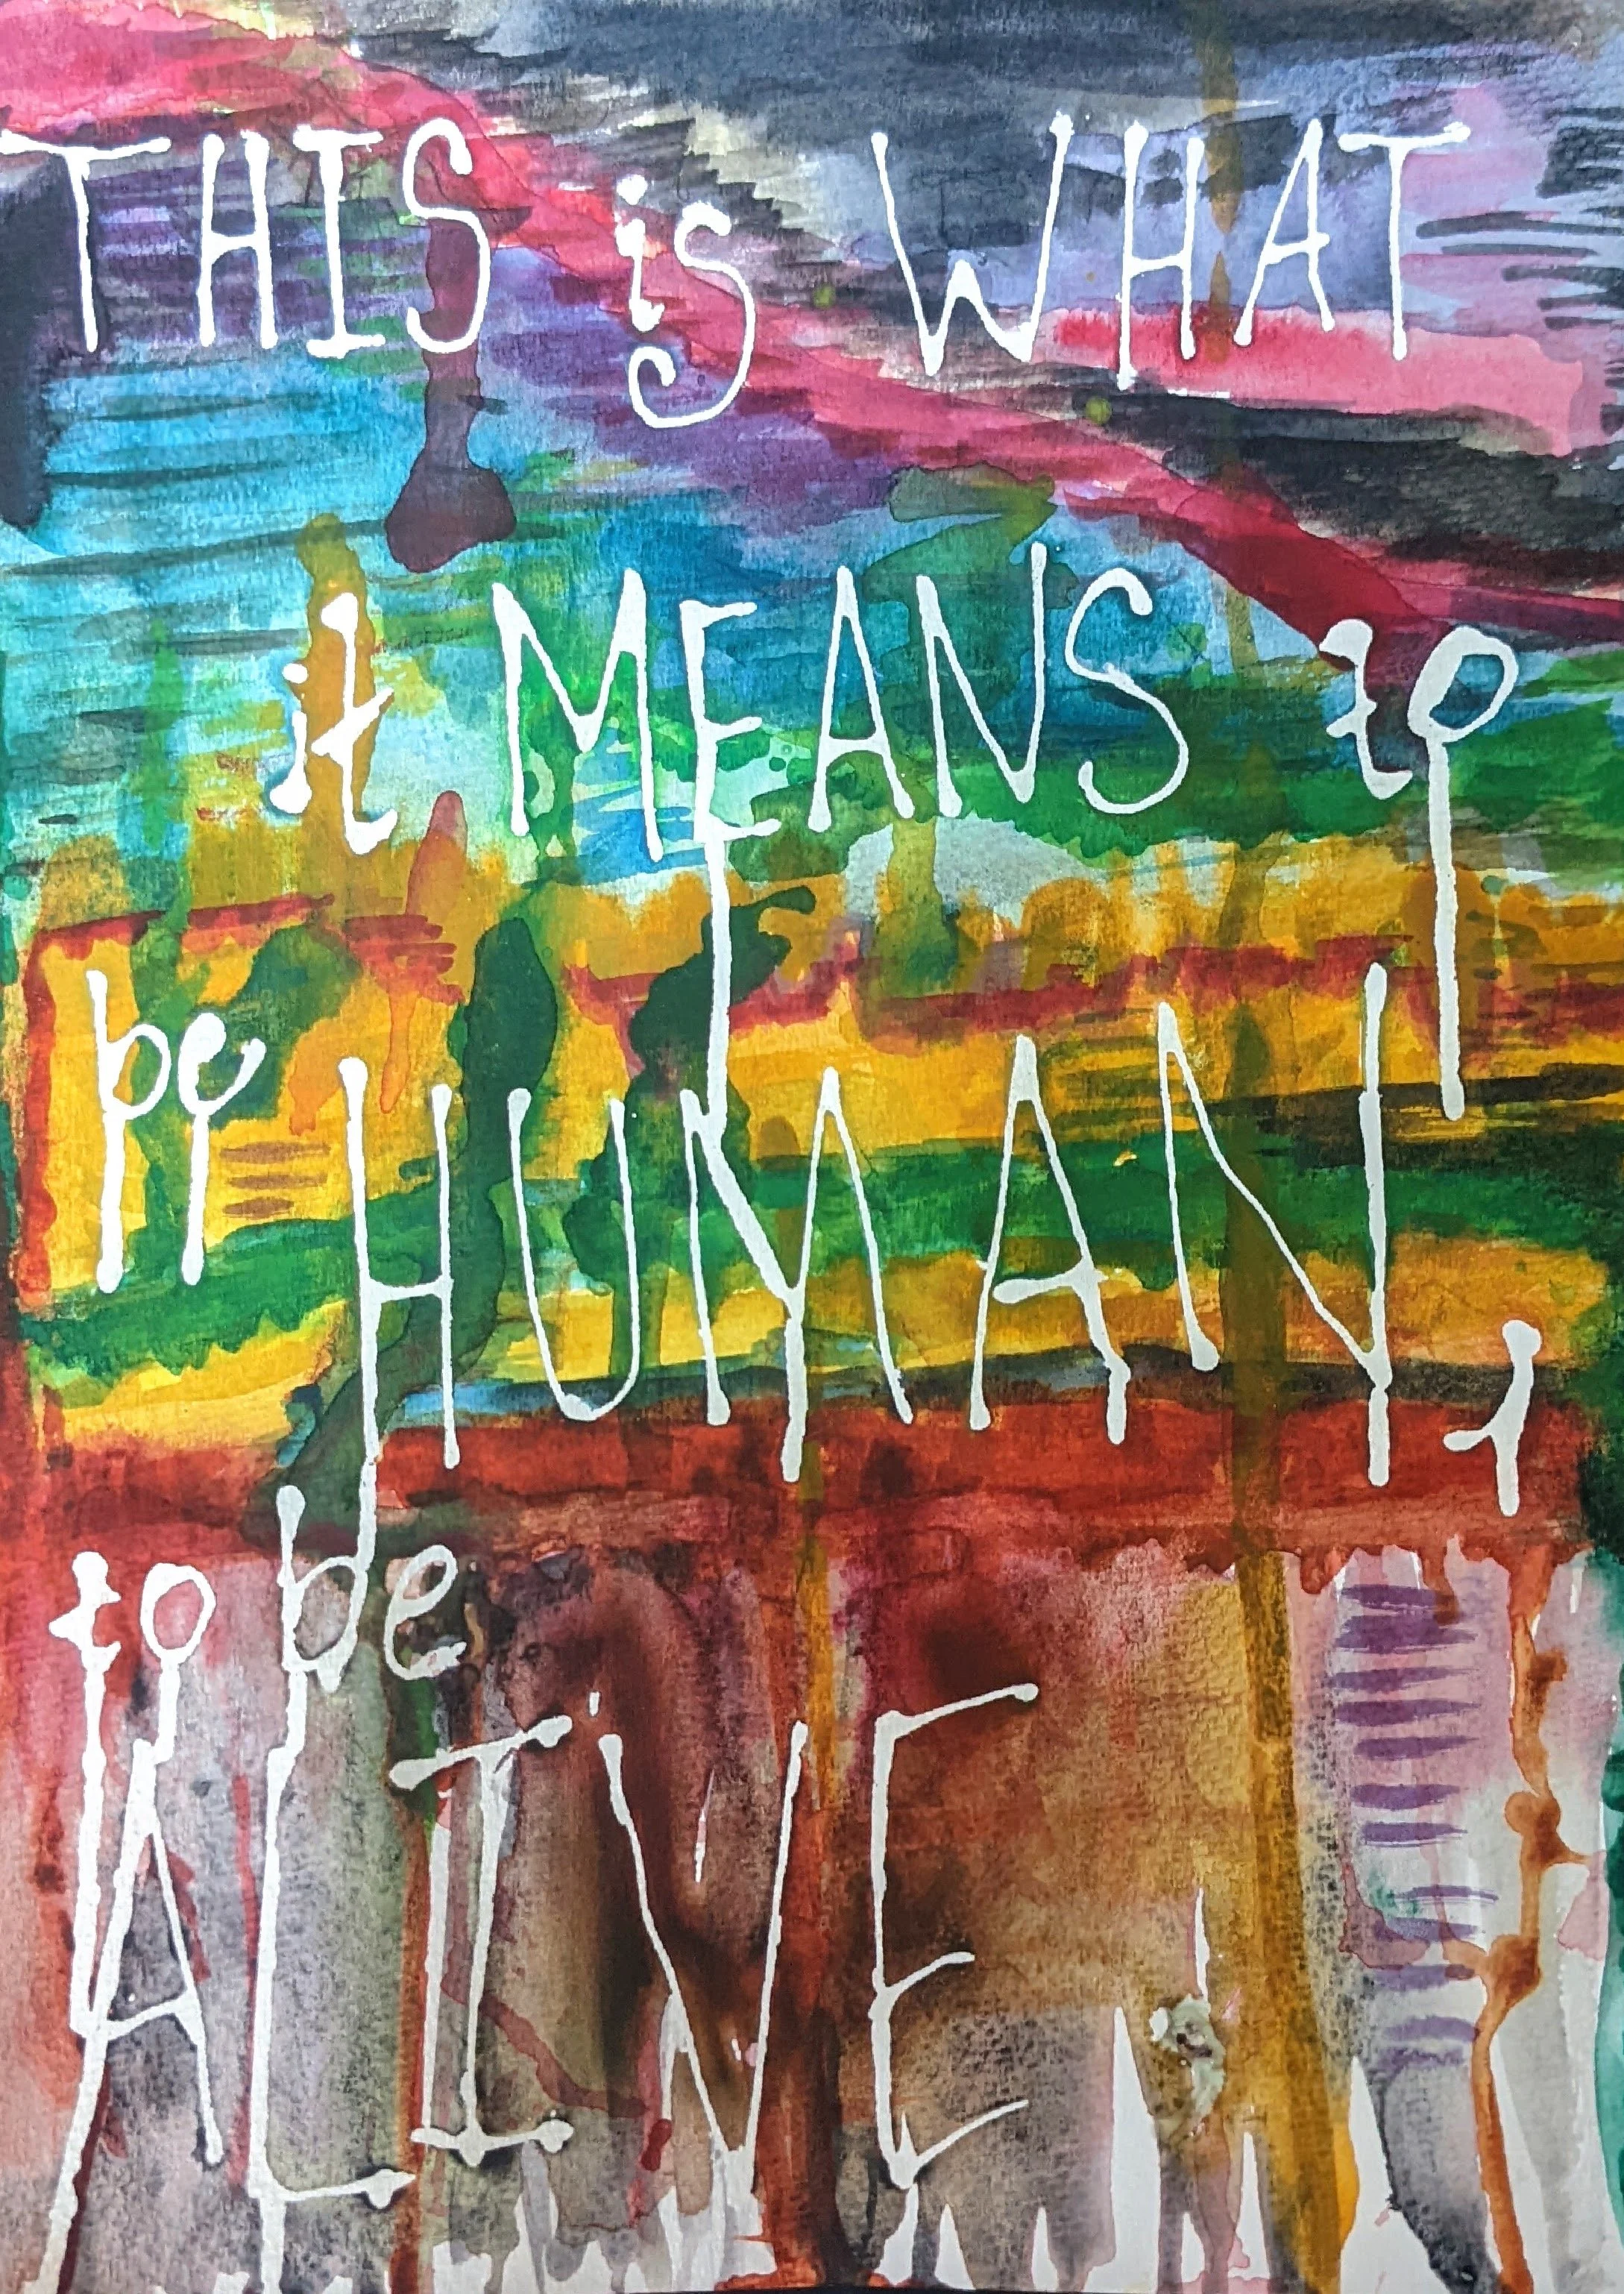 THIS is WHAT
it MEANS to
be HUMAN,
to be
ALIVE